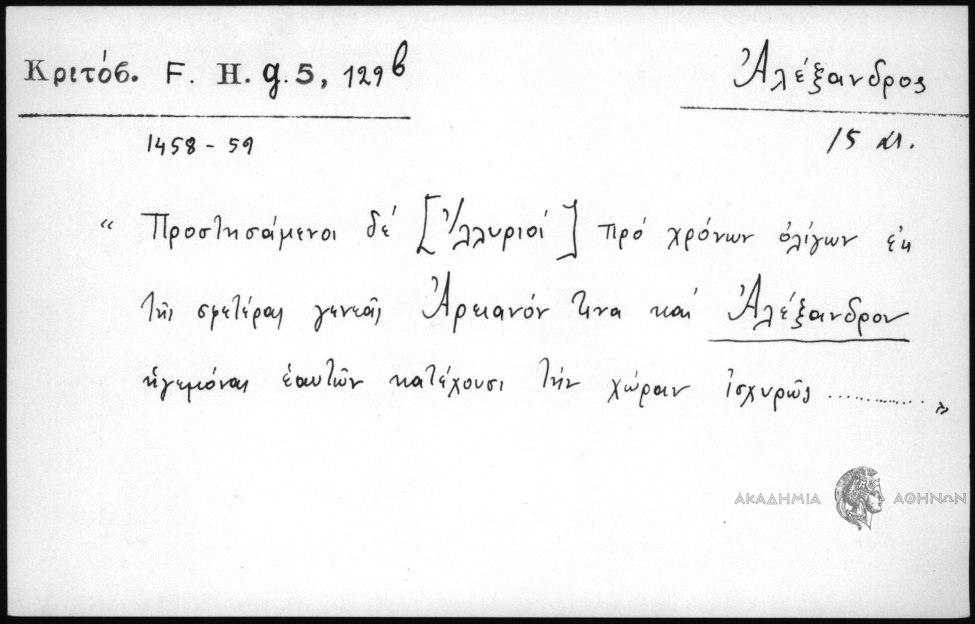 Κριτόβ. F. H. g. 5, 129β
Ἀλέξανδρος
1458 - 59
15 αι.
“ Προστησάμενοι δέ [Ἰλλυριοί] πρό χρόνων ὀλίγων ἐκ
τῆς σφετέρας γενεᾶς Ἀρειανόν τινα καί Ἀλέξανδρον
ἡγεμόνας ἑαυτῶν κατέχουσι τήν χώραν ἰσχυρῶς ............. ”
ΑΚΑΔΗΜΙΑ ΑΘΗΝΩΝ